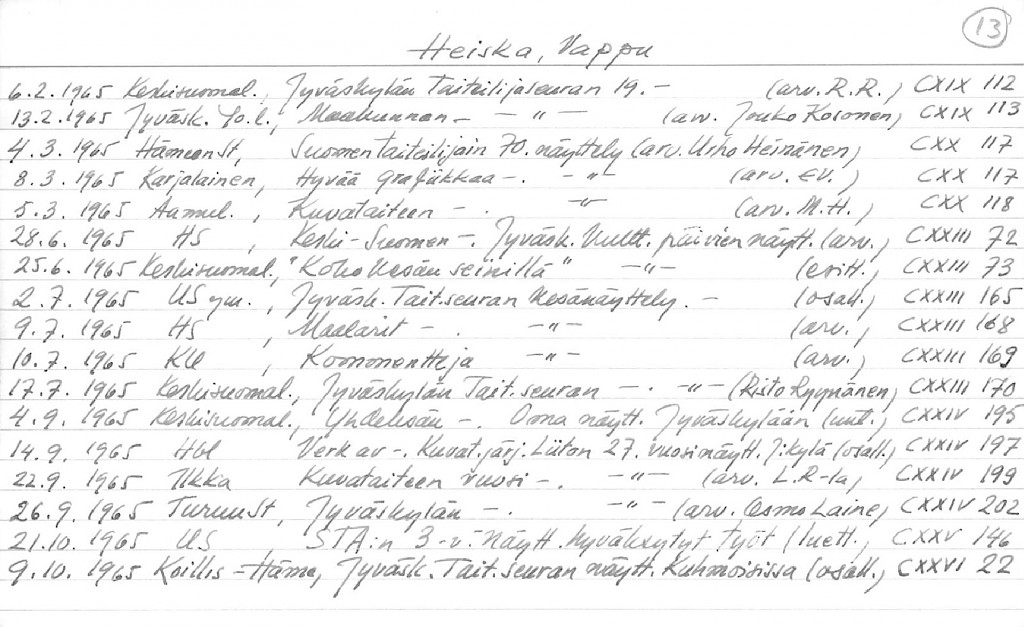 13
Heiska, Vappu
6.2.1965 Keskisuomal., Jyväskylän Taiteilijaseuran 19. – (arv. R.R.) CXIX 112
13.2.1965 Jyväsk. Yo.l., Maakunnan – – " – (arv. Jouko Kosonen) CXIX 113
4.3.1965 HämeenSt, Suomen taiteilijain 70. näyttely (arv. Urho Heinänen) CXX 117
8.3.1965 Karjalainen, Hyvää grafiikkaa –. – " – (arv. E.V.) CXX 117
5.3.1965 Aamul., Kuvataiteen –. – " – (arv. M.H.) CXX 118
28.6.1965 HS, Keski-Suomen –. Jyväsk. Kultt. päivien näytt. (arv.) CXXIII 72
25.6.1965 Keskisuomal., "Koko kesän seinillä" – " – (esitt.) CXXIII 73
2.7.1965 US ym., Jyväsk. Tait.seuran kesänäyttely. – (osall.) CXXIII 165
9.7.1965 HS, Maalarit –. – " – (arv.) CXXIII 168
10.7.1965 KU, Kommentteja – " – (arv.) CXXIII 169
17.7.1965 Keskisuomal., Jyväskylän Tait.seuran –. – " – (Risto Ryynänen) CXXIII 170
4.9.1965 Keskisuomal., Yhdeksän –. Oma näytt. Jyväskylään (uut.) CXXIV 195
14.9.1965 Hbl Verk av –. Kuvat.järj. Liiton 27. vuosinäytt. J:kylä (osall.) CXXIV 197
22.9.1965 Ilkka Kuvataiteen vuosi –. – " – (arv. L.R-la) CXXIV 199
26.9.1965 TurunSt, Jyväskylän –. – " – (arv. Osmo Laine) CXXIV 202
21.10.1965 US, STA:n 3-v. näytt. hyväksytyt työt (luett.) CXXV 146
9.10.1965 Koillis-Häme, Jyväsk. Tait.seuran näytt. Kuhmoisissa (osall.) CXXVI 22